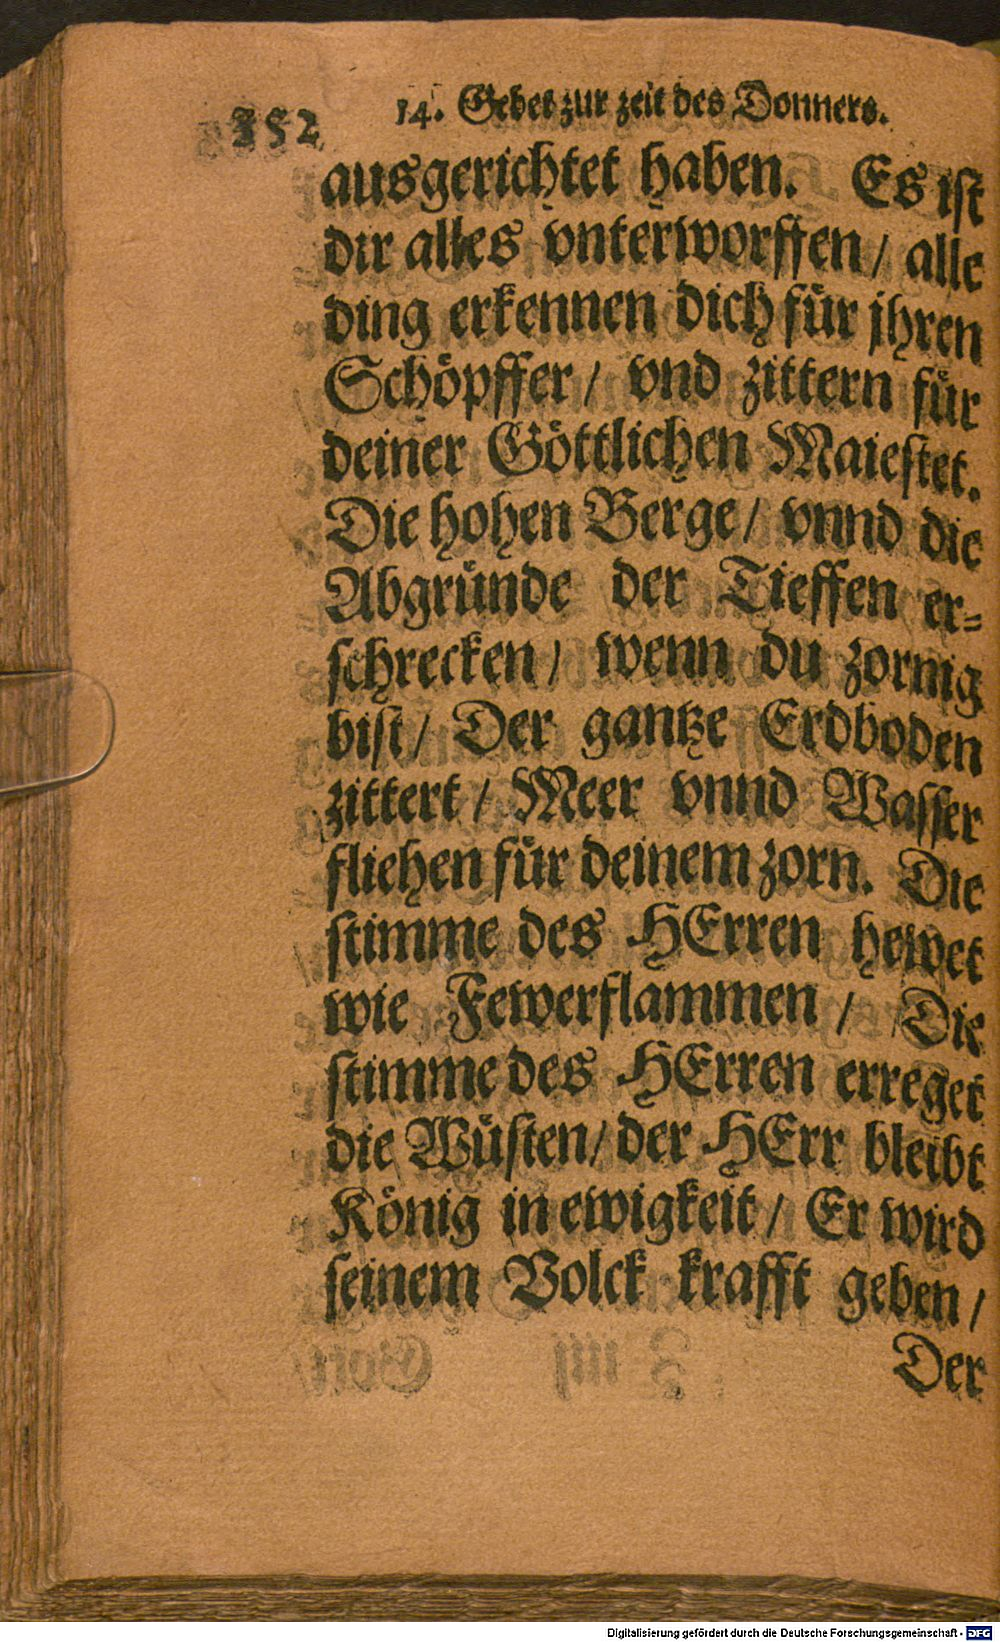 352 14. Gebet zur zeit des Donners.
ausgerichtet haben. Es ist
dir alles vnterworffen / alle
ding erkennen dich für jhren
Schöpffer / vnd zittern für
deiner Göttlichen Maiestet.
Die hohen Berge / vnnd die
Abgründe der Tieffen er-
schrecken / wenn du zornig
bist / Der gantze Erdboden
zittert / Meer vnnd Wasser
fliehen für deinem zorn. Die
stimme des HErren hewet
wie Fewerflammen / Die
stimme des HErren erreget
die Wüsten / der HErr bleibt
König in ewigkeit / Er wird
seinem Volck krafft geben /
Der
Digitalisierung gefördert durch die Deutsche Forschungsgemeinschaft - DFG